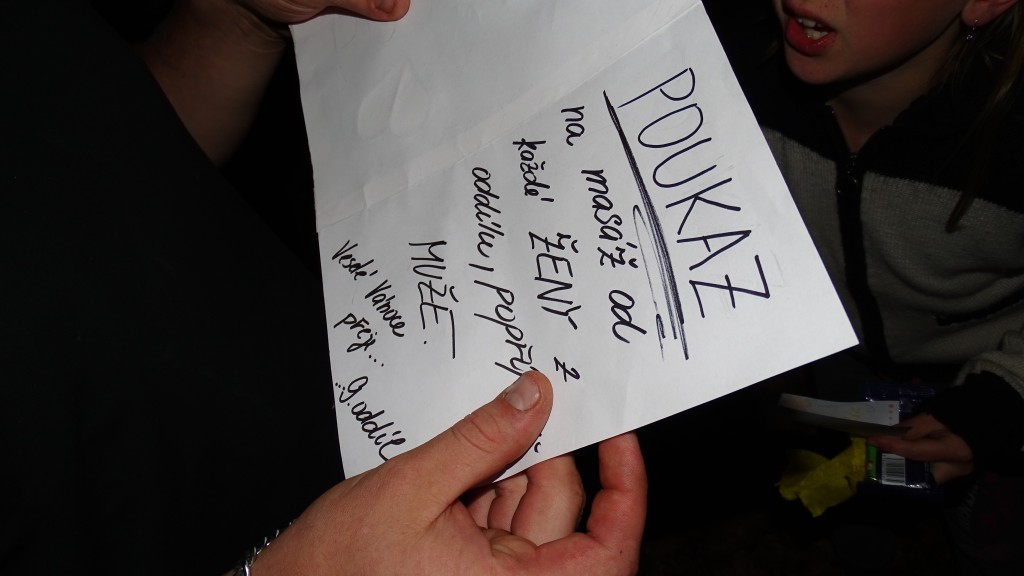 POUKAZ
na masáž od
každé ŽENY z
oddílu, popří
MUŽE.
Veselé Vánoce
přeje...
9. oddíl